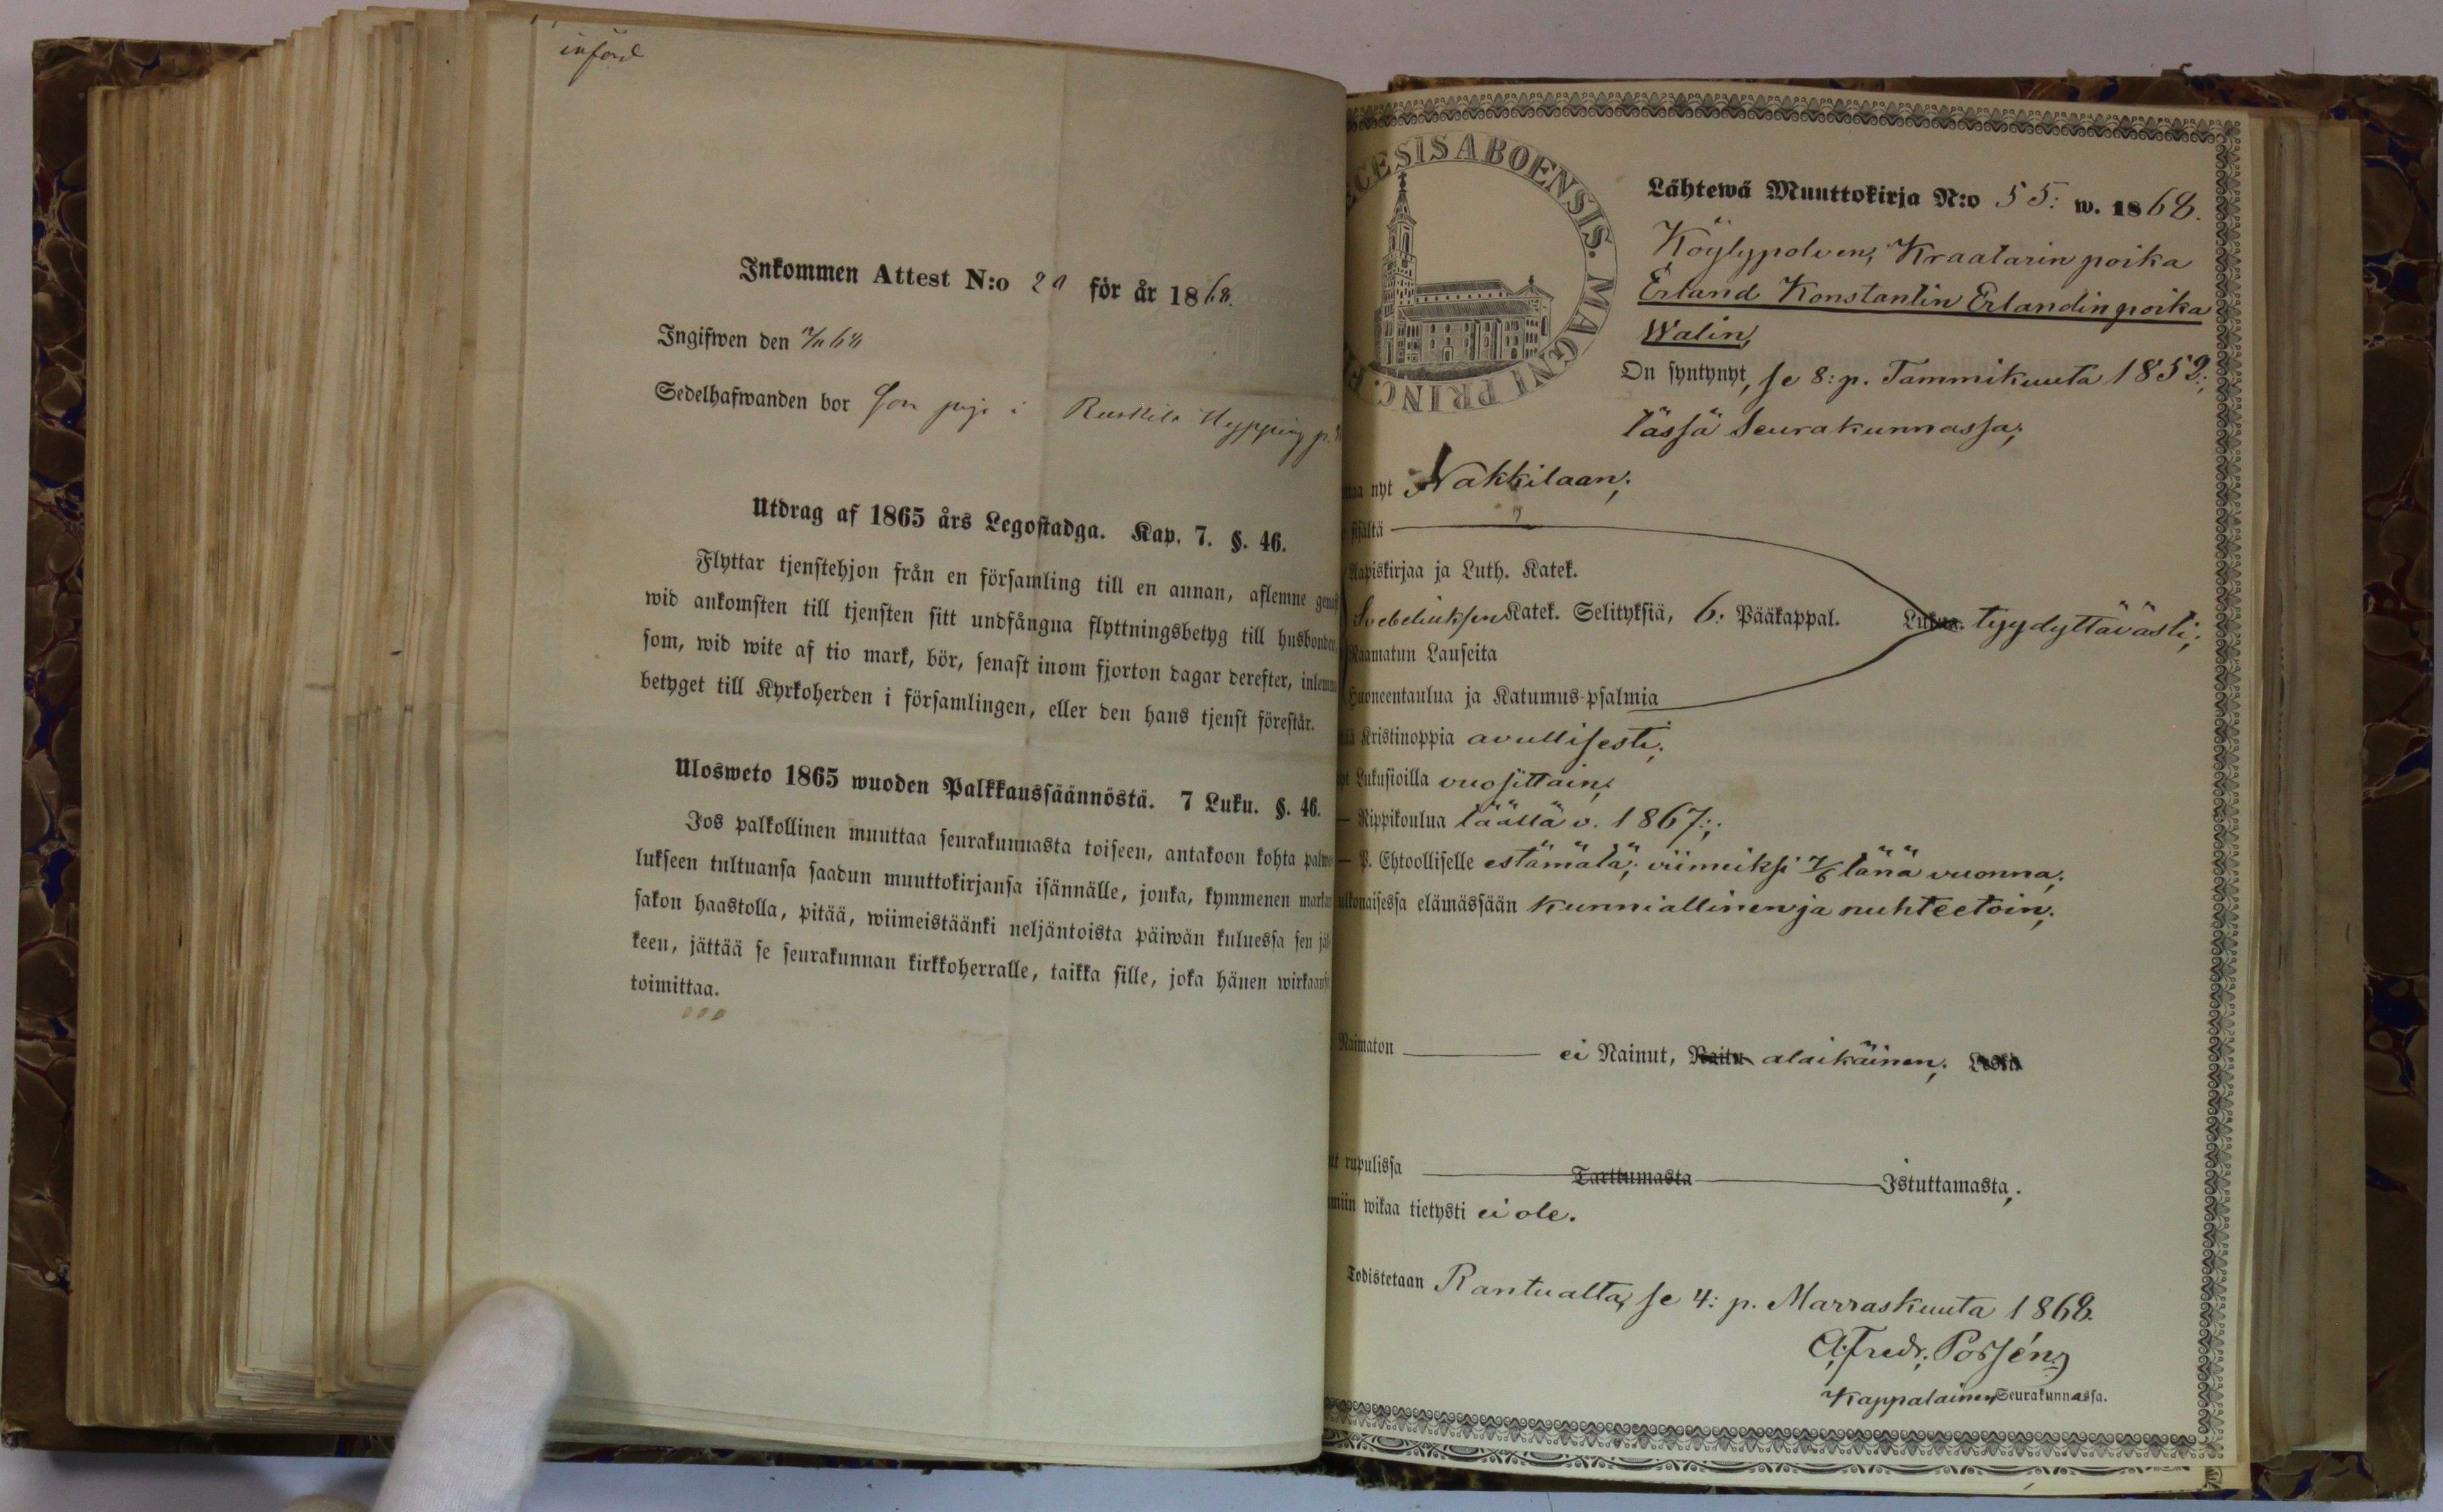 införd
Inkommen Attest N:o 20 för år 1868.
Ingifwen den
Sedelhafwanden bor Som pige i Ruskila Hypping
Utdrag af 1865 års Legostadga. Kap. 7. §. 46.
Flyttar tjenstehjon från en församling till en annan, aflemne
wid ankomsten till tjensten sitt undfångna flyttningsbetyg till husbonden,
som, wid wite af tio mark, bör, senast inom fjorton dagar derefter,
betyget till Kyrkoherden i församlingen, eller den hans tjenst förestår.
Ulosweto 1865 wuoden Palkkaussäännöstä. 7 Luku. §. 46.
Jos palkollinen muuttaa seurakunnasta toiseen, antakoon kohta
lukseen tultuansa saadun muuttokirjansa isännälle, jonka, kymmenen
sakon haastolla, pitää, wiimeistäänki neljäntoista päiwän kuluessa sen
keen, jättää se seurakunnan kirkkoherralle, taikka sille, joka hänen
toimittaa.
CESIS ABOENSIS. MAGNI PRINC.
Lähtewä Muuttokirja N:o 55: w. 1868.
Köylypolven, Kraatarin poika
Erland Konstantin Erlandinpoika
Walin,
On syntynyt, se 8: p. Tammikuuta 1852;,
tässä Seurakunnassa;
nyt Nakkilaan;
sisältä
Aapiskirjaa ja Luth. Katek.
Svebeliuksen Katek. Selityksiä, 6: Pääkappal. Lukua. tyydyttävästi;
Raamatun Lauseita
Huoneentaulua ja Katumus-psalmia
Kristinoppia avullisesti;
Lukusioilla vuosittain;
— Rippikoulua täällä v. 1867;,
— P. Ehtoolliselle estämätä; viimeiksi 7/6 tänä vuonna;
elämässään kunniallinen ja nuhteetoin;
Naimaton ei Nainut, Naitu alaikäinen; Leski
rupulissa Tarttumasta Istuttamasta;
wikaa tietysti ei ole.
Todistetaan Kantualta, se 4: p. Marraskuuta 1868.
A. Fredr. Porsén
Kappalainen Seurakunnassa.